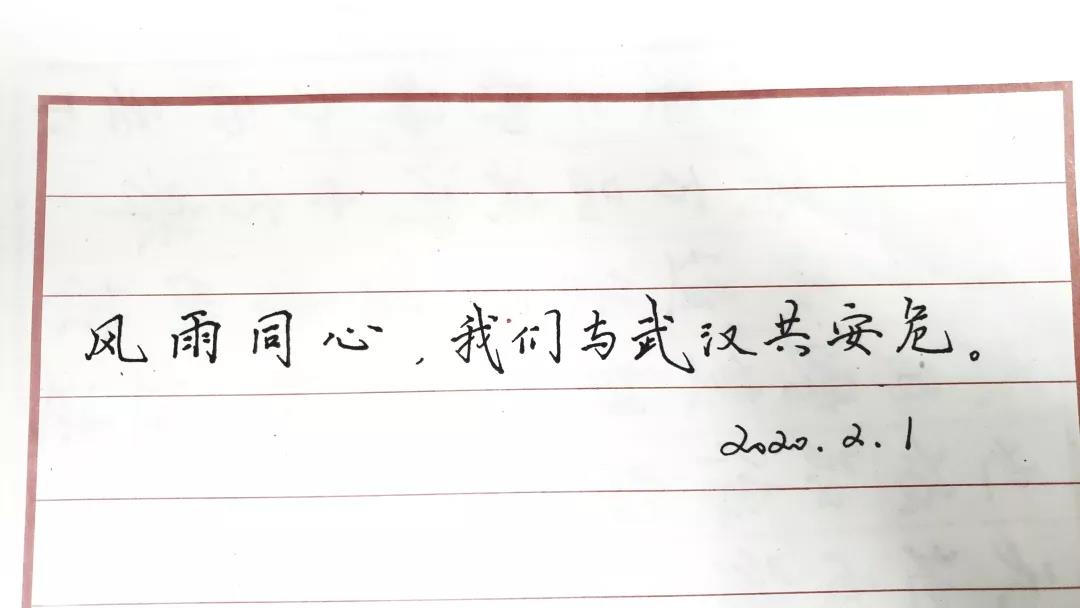 风雨同心,我们与武汉共安危。
2020.2.1